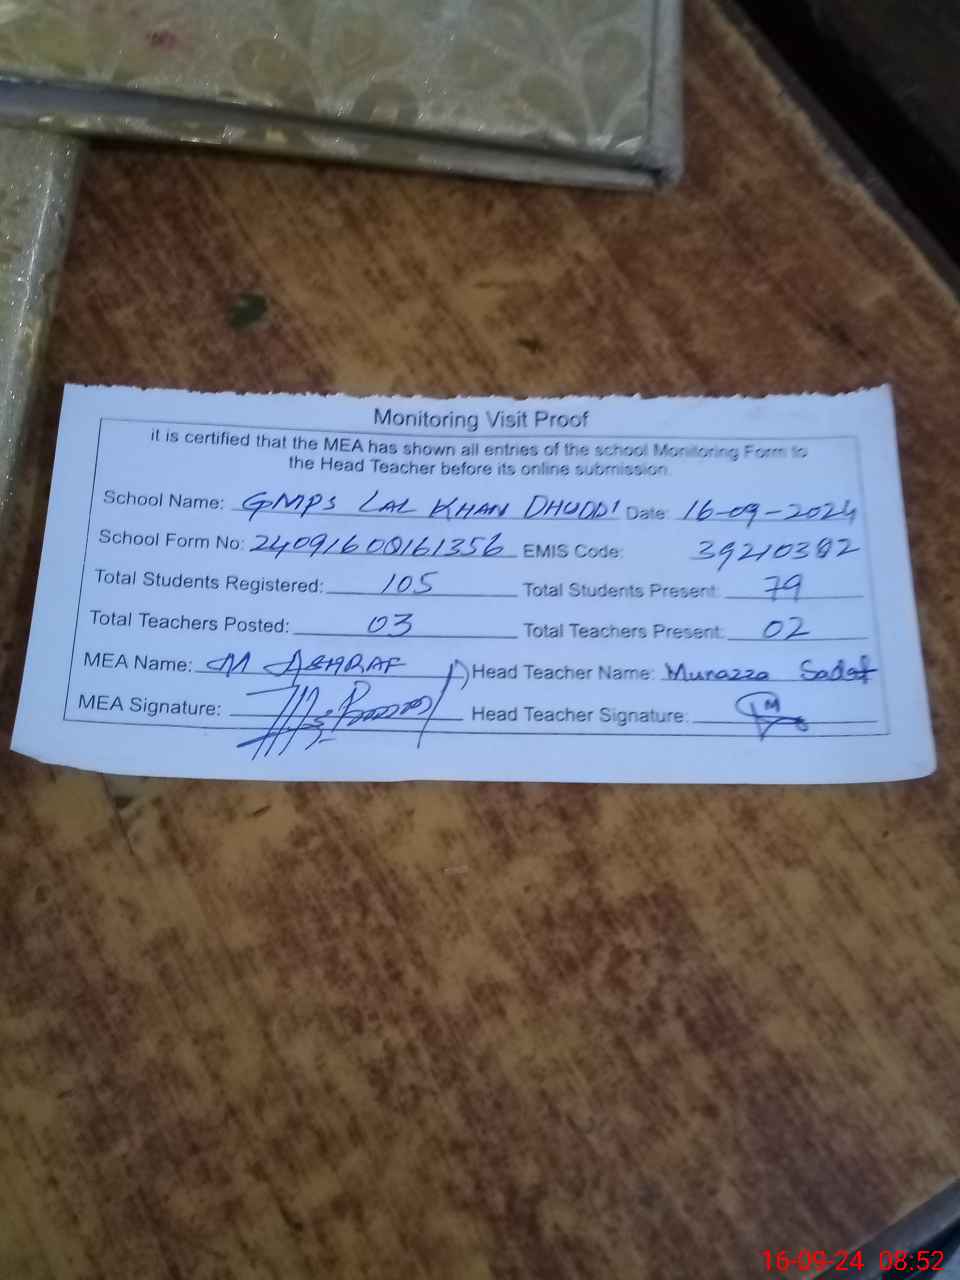 Monitoring Visit Proof
it is certified that the MEA has shown all entries of the school Monitoring Form to
the Head Teacher before its online submission
School Name: GMPS LAL KHAN DHUDDI Date: 16-09-2024
School Form No: 24091600161356 EMIS Code: 39210382
Total Students Registered: 105 Total Students Present: 79
Total Teachers Posted: 03 Total Teachers Present: 02
MEA Name: M ASHRAF Head Teacher Name: Munazza Sadaf
MEA Signature: Head Teacher Signature:
16-09-24 08:52